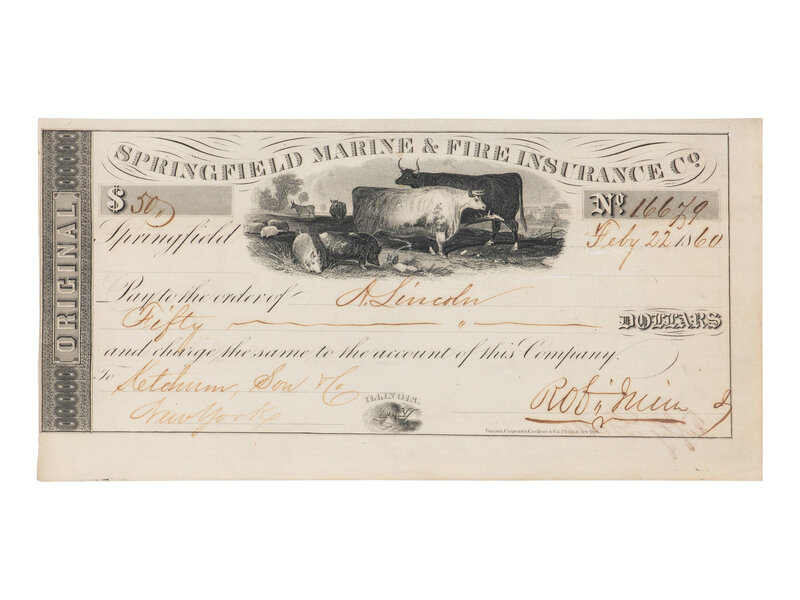 SPRINGFIELD MARINE & FIRE INSURANCE Co.
ORIGINAL
$ 50
No. 16679
Springfield Feby 22 1860
Pay to the order of A. Lincoln
Fifty " DOLLARS
and charge the same to the account of this Company.
To Ketchum, Son & Co
New York
ILLINOIS.
Toppan, Carpenter, Casilear & Co. Phila. & New York